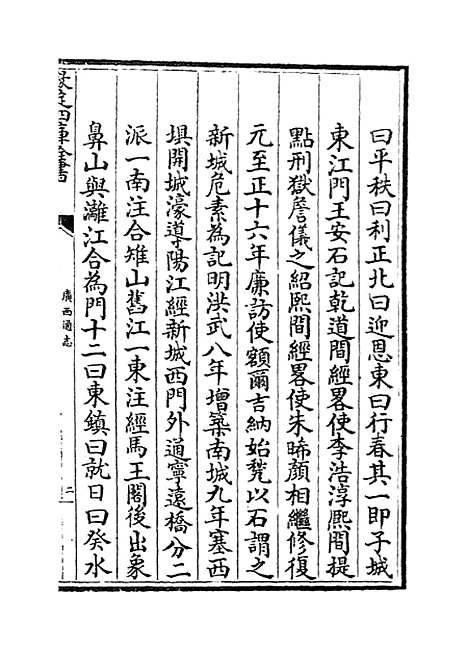 曰平秩曰利正北曰迎恩東曰行春其一即子城
東江門王安石記乾道間經畧使李浩淳熙間提
點刑獄詹儀之紹熙間經畧使朱晞顏相繼修復
元至正十六年廉訪使額爾吉納始甃以石謂之
新城危素為記明洪武八年增築南城九年塞西
埧開城濠導陽江經新城西門外通寧遠橋分二
派一南注合雉山舊江一東注經馬王閣後出象
鼻山與灕江合為門十二曰東鎮曰就日曰癸水
欽定四庫全書
廣西通志
二